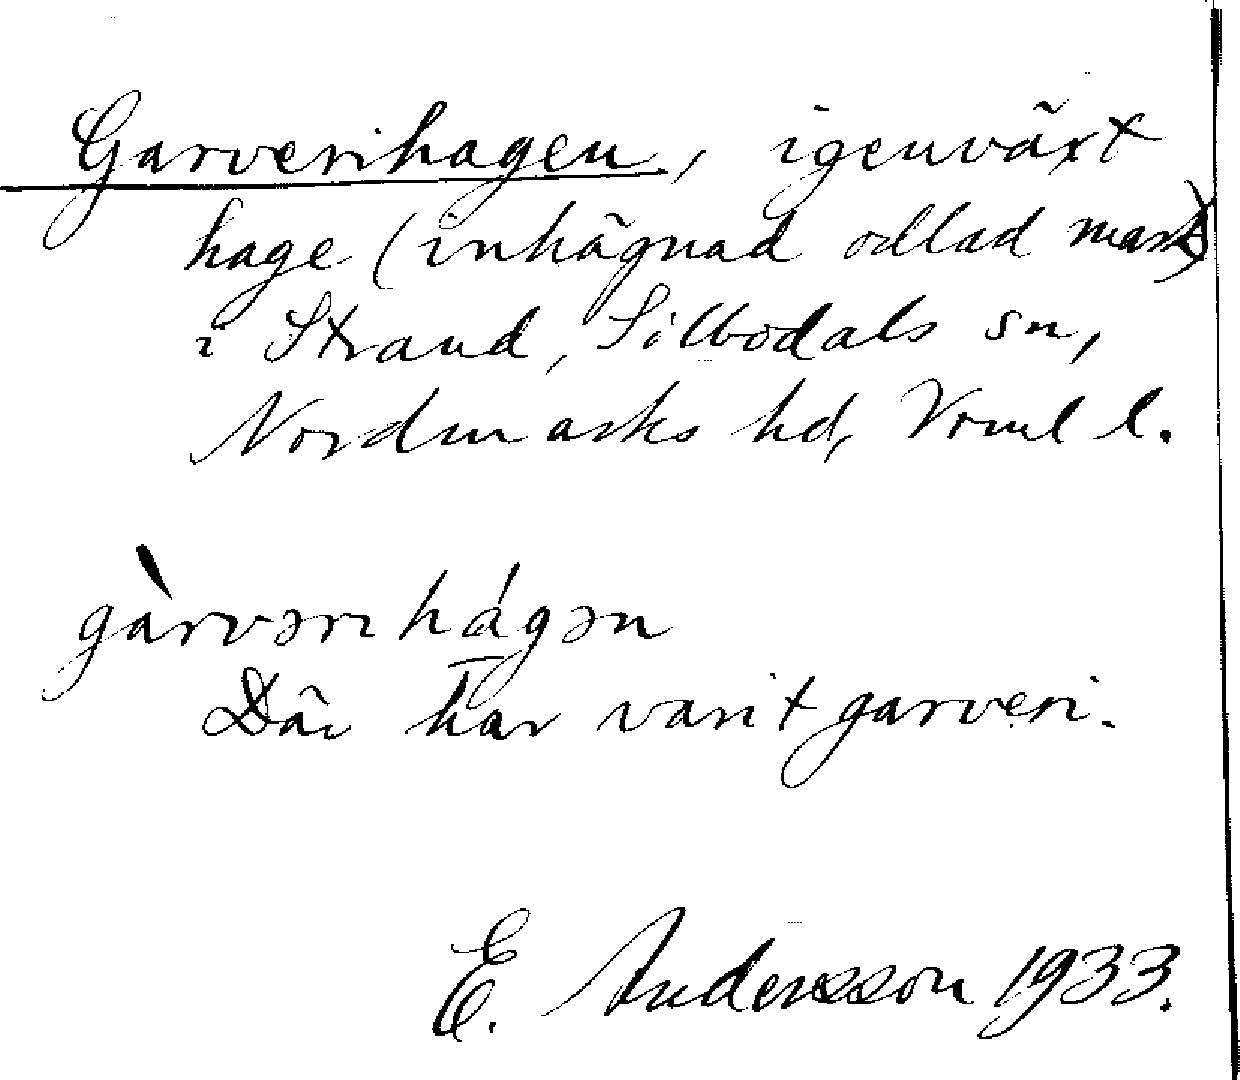 Garverihagen, igenväxt
hage (inhägnad odlad mark)
i Strand, Silbodals sn,
Nordmarks hd, Vrml l.
gàrvəri hágən
Där har varit garveri.
E. Andersson 1933.